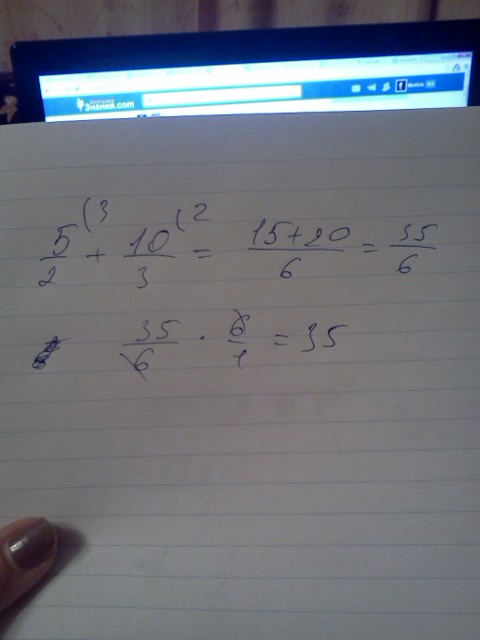 Знания.com
5/2 (3 + 10/3 (2 = 15+20/6 = 35/6
35/6 · 6/1 = 35